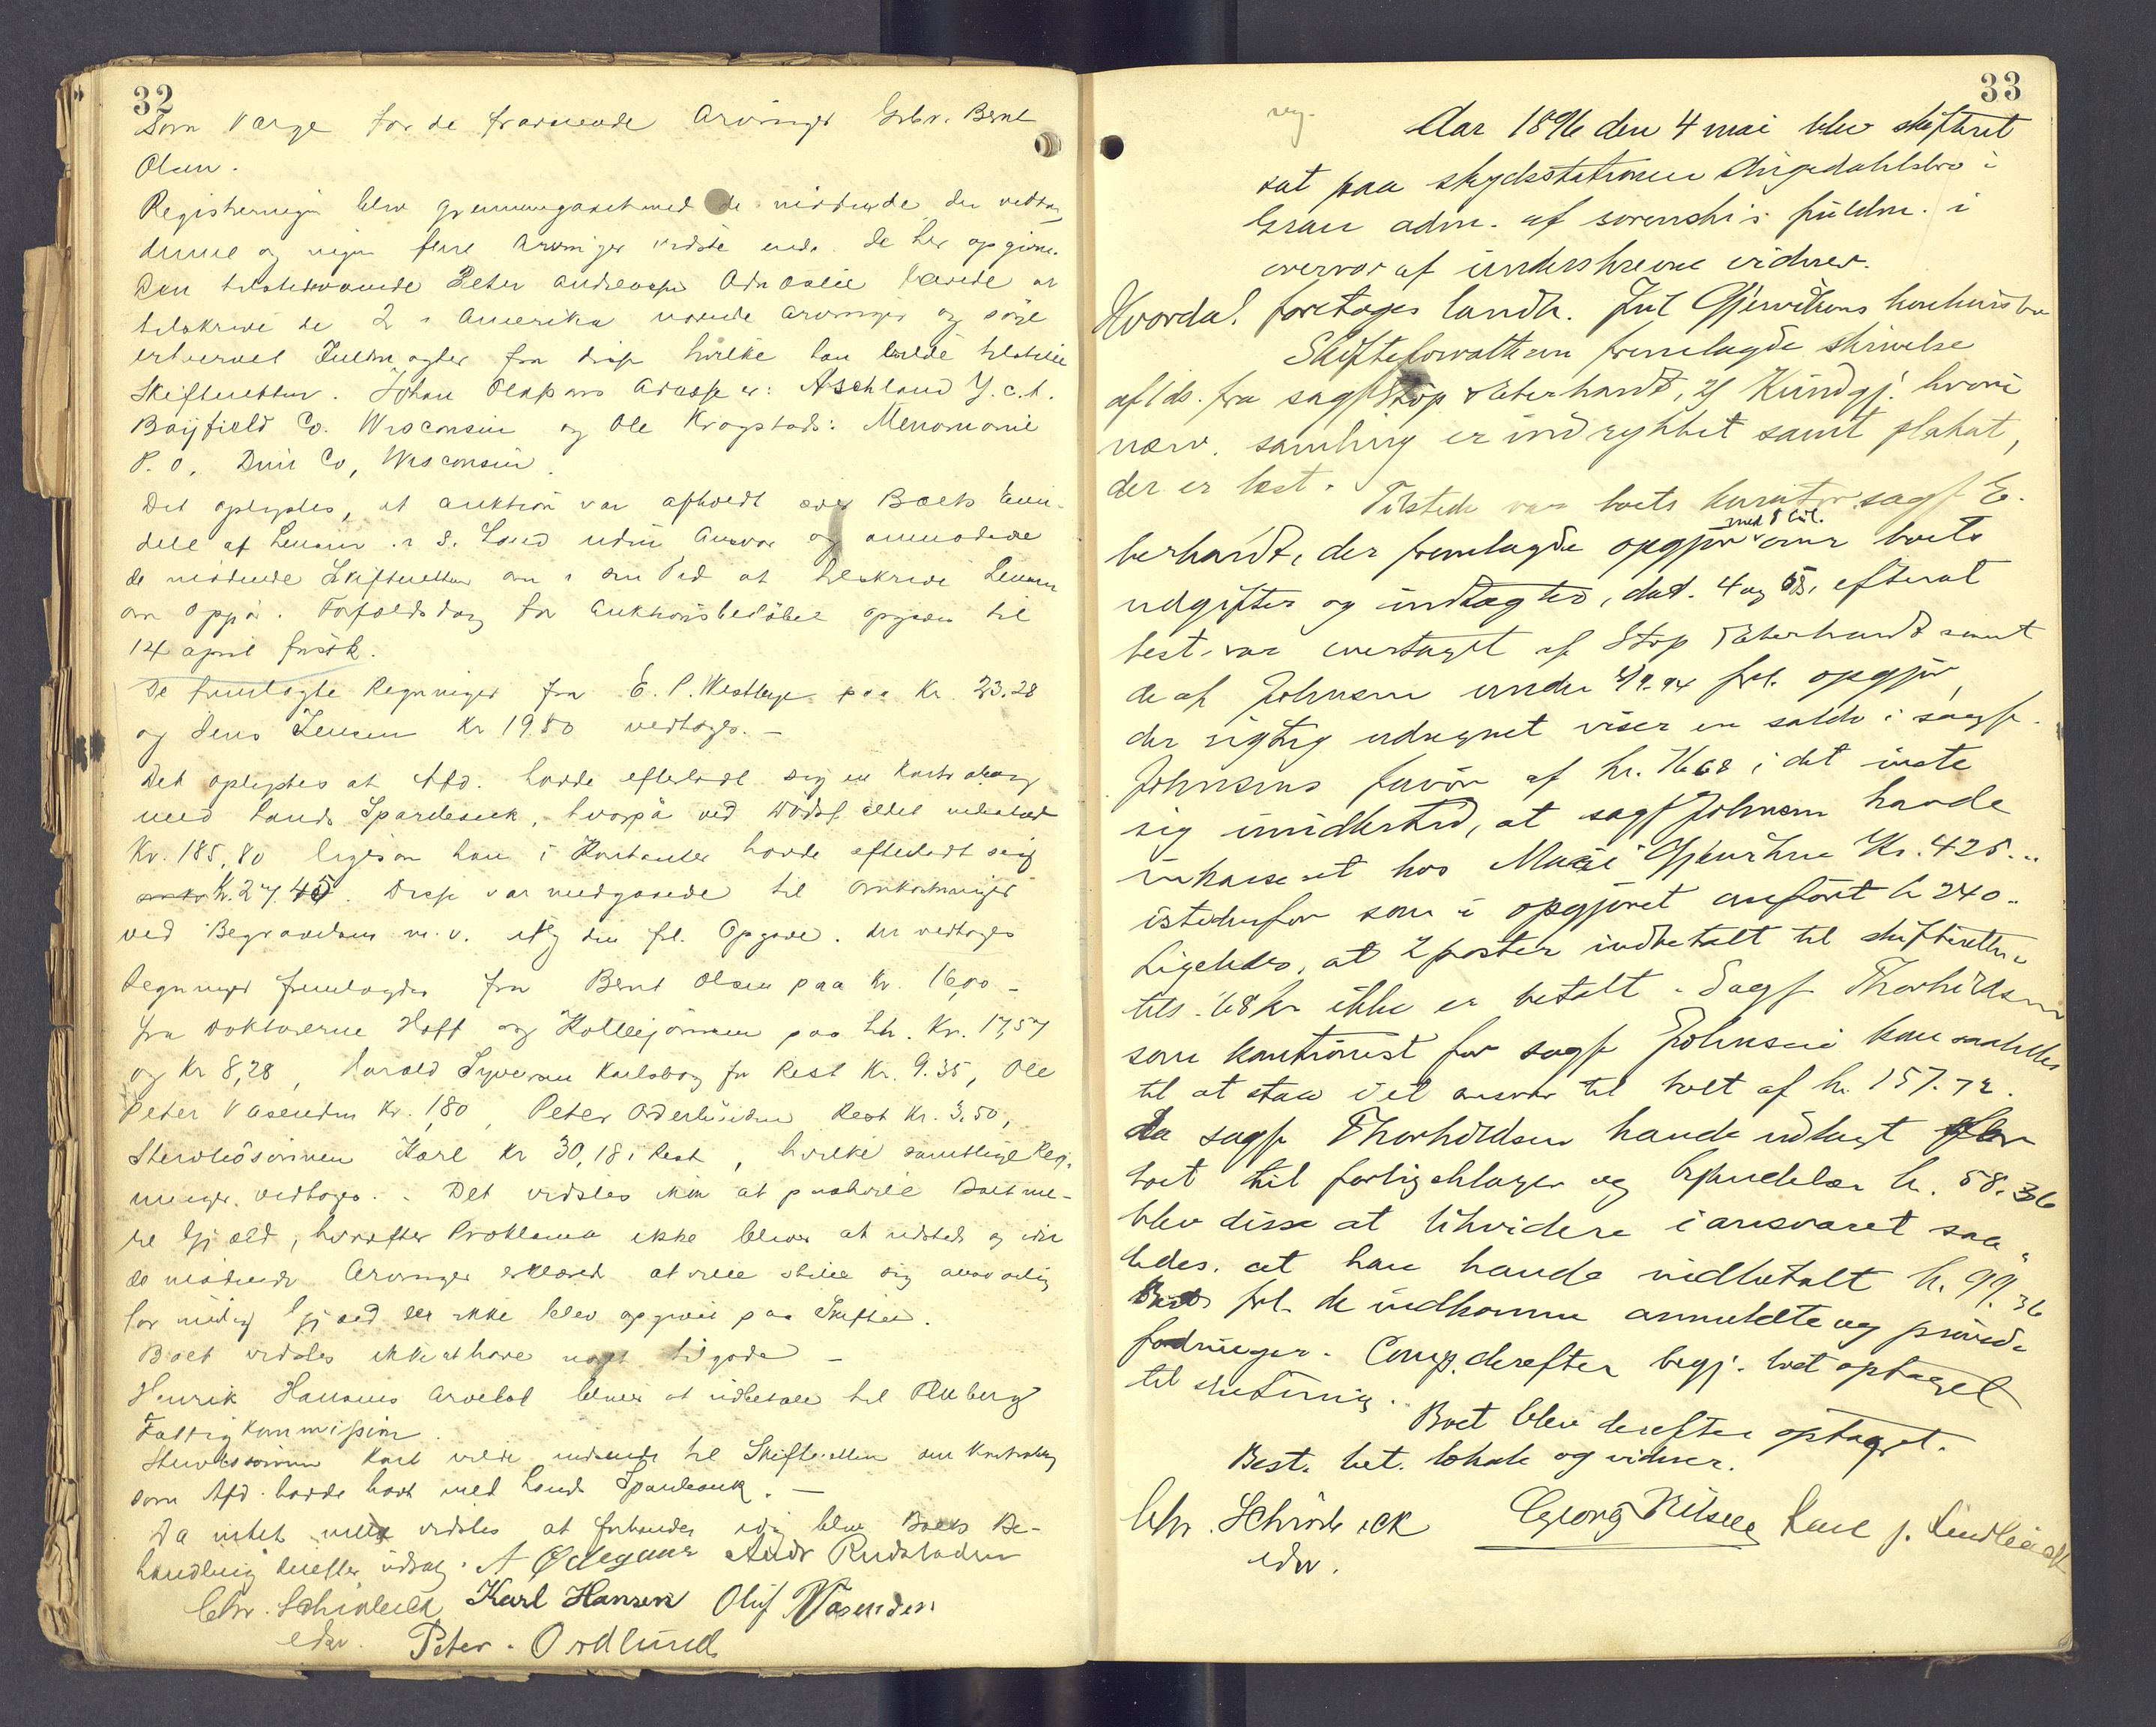 32
Som Værge for de fraværende Arvinger Gbr. Bernt
Olsen.
Registreringen blev gjennemgaaet med de mødende der vedtog
denne og ingen flere Arvinger vidste end de her opgivne.
Den tilstedeværende Peter Andreasen Odn
tilskrive de 2 i Amerika værende Arvinger og søge
erhvervet Fuldmagter fra disse hvilke han vilde tilstille
Skifteretten. Johan Olsens Adresse er: Aschland Y.c.t.
Bayfield Co. Wisconsin og Ole Krogstads: Menomonie
P. O. Dun Co, Wisconsin.
Det oplystes, at auktion var afholdt over Boets Eien-
dele af Lensm. i S. Land uden Ansvar og anmodede
de mødende Skifteretten om i sin Tid at tilskrive Lensm
om Opgjør. Forfaldsdag for Auktionsbeløbet opgives til
14 april
De fremlagte Regninger fra E. P. Westby paa Kr. 23.28
og Jens Jensen Kr 19.80 vedtoges. —
Det oplystes at Afd. havde efterladt sig en Kontrabog
med Lands Sparebank, hvorpå ved Dødsfaldet indestod
Kr. 185,80 ligesom han i Kontanter havde efterladt sig
Kr. 27.45. Disse var medgaaede til Omkostninger
ved Begravelsen m. v. ifølg den frl. Opgave. der vedtoges
Regninger fremlagdes fra Bernt Olsen paa Kr. 16,00 -
fra Doktorerne Hoff og paa hh. Kr. 17,57
og Kr 8,28, Harald Syversen Karlsborg for Rest Kr. 9.35, Ole
Peter Vasenden Kr. 1,80, Peter Rest Kr. 3,50,
Stervbosønnen Karl Kr 30,18 i Rest, hvilke samtlige Reg-
ninger vedtoges. - Det vidstes ikke at paahvile Boet me-
re Gjæld, hvorefter Proklama ikke bliver at udstede og
de mødende Arvinger erklærede at ville stille sig ansvarlig
for mulig Gjæld der ikke blev opgivet paa Skiftet.
Boet vidstes ikke at have noget tilgode —
Henrik Hansens Arvelod bliver at udbetale til Fluberg
Fattigkommission.
Stervbosønnen Karl vilde indsende til Skifteretten den Kontrabog
som Afd. havde havt med Lands Sparebank. —
Da intet mere vidstes at forhandle idag blev Boets Be-
handling derefter udsat. A Ødegaard Andr Rudstaden
Chr. Karl Hansen Oluf Vasenden
edsv. Peter. Ordlund
33
reg.
Aar 1896 den 4 mai blev skifteret
sat paa skydsstationen Augedahlsbro i
Gran adm. af sorenskr's fuldm. i
overvær af underskrevne vidner.
Hvorda! foretoges landh. Jul Gjerviksens konkursbo
Skifteforvalteren fremlagde skrivelse
af f ds. fra sagf Stop & Eberhardt, 2 Kundgj. hvori
nærv. samling er indrykket samt plakat,
der er læst.
Tilstede var boets kurator sagf E-
berhardt, der fremlagde opgjør med 8 bil. over boets
udgifter og indtægter, dat. 4 og efterat
best. var overtaget af Stop & Eberhardt samt
de af Johnsen under 4/9.94 frl. opgjør,
der rigtig udregnet viser en saldo i sagf.
Johnsens favør af kr. 16.68 i det viste
sig imidlertid, at sagf Johnsen havde
inkasseret hos Gjervikne Kr. 425..
istedenfor som i opgjøret anført kr 240..
Ligeledes, at 2 poster indbetalt til skifteretten
tils. 68 kr ikke er betalt. Sagf Thorkildsen
som kautionist for sagf Johnsen kom saaledes
til at staa i et ansvar til boet af kr. 157.72.
Da sagf Thorkildsen havde udlagt
boet til forligsklager og kr. 58.36
blev disse at likvidere i ansvaret saa-
ledes. at han havde indbetalt kr. 99.36
Best. frl. de indkomne anmeldte og prøvede
fordringer. Comp. derefter begj. boet optaget
til slutning.
Boet blev derefter optaget.
Best. bet. lokale og vidner.
Chr. Georg Nilsen Karl J.
edsv.